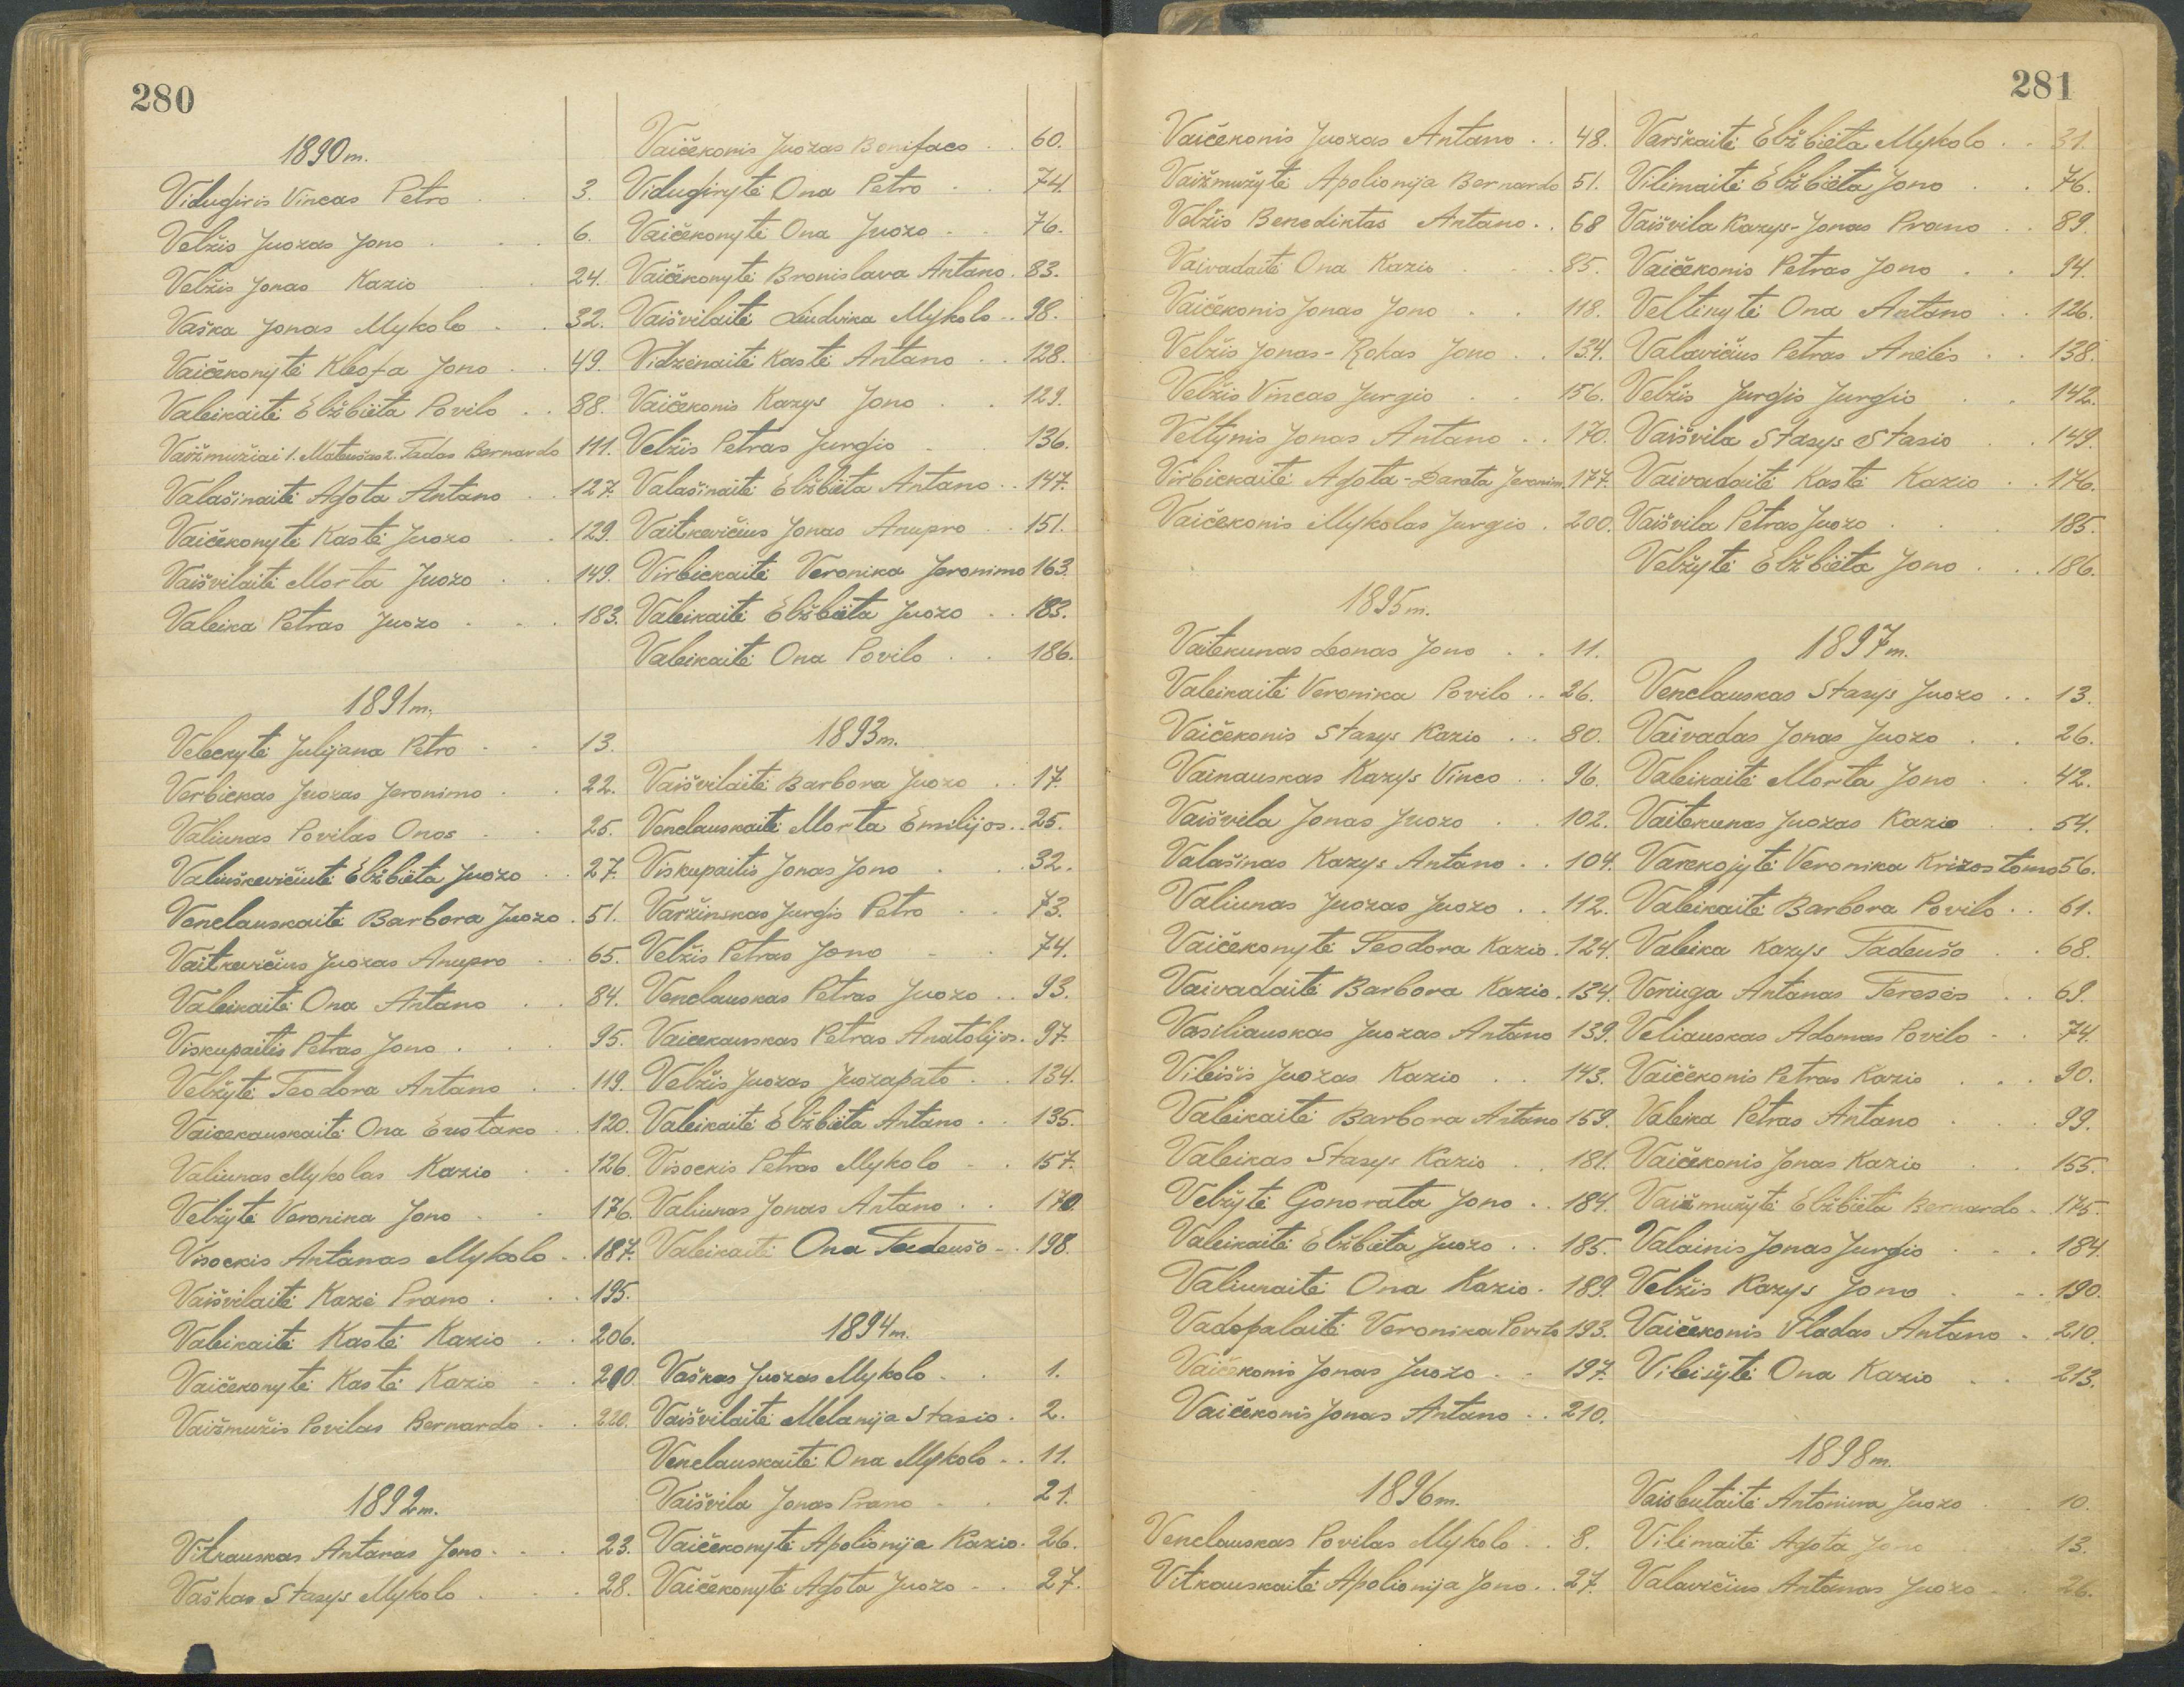 280
1890 m.
Vidugiris Vincas Petro . . 3.
Velžis Juozas Jono . . . 6.
Velžis Jonas Kazio . . 24.
Vaška Jonas Mykolo . . 32.
Vaičekonytė Kleofa Jono . . 49.
Valeikaitė Elžbieta Povilo . . 88.
Vaižmužiai 1. Mateušas 2. Tadas Bernardo 111.
Valašinaitė Agota Antano . . 127.
Vaičekonytė Kastė Juozo . . 129.
Vaišvilaitė Morta Juozo . . 149.
Valeika Petras Juozo . . . 183.
1891 m.
Veleckytė Julijana Petro . . 13.
Verbickas Juozas Jeronimo . . 22.
Valiunas Povilas Onos . . 25.
Valiuškevičiutė Elžbieta Juozo . . 27.
Venclauskaitė Barbora Juozo . 51.
Vaitkevičius Juozas Anupro . . 65.
Valeikaitė Ona Antano . . 84.
Viskupaitis Petras Jono . . . 95.
Velžytė Teodora Antano . . 119.
Vaicekauskaitė Ona Eustako . . 120.
Valiunas Mykolas Kazio . . 126.
Velžytė Veronika Jono . . 176.
Visockis Antanas Mykolo . . 187.
Vaišvilaitė Kazė Prano . . . 195.
Valeikaitė Kastė Kazio . . 206.
Vaičekonytė Kastė Kazio . . 210.
Vaižmužis Povilas Bernardo . . 220.
1892 m.
Vitkauskas Antanas Jono . . . 23.
Vaškas Stasys Mykolo . . . 28.
Vaičekonis Juozas Bonifaco . . 60.
Vidugirytė Ona Petro . . 74.
Vaičekonytė Ona Juozo . . 76.
Vaičekonytė Bronislava Antano . 83.
Vaišvilaitė Liudvika Mykolo . . 98.
Vidzėnaitė Kastė Antano . . 128.
Vaičekonis Kazys Jono . . 129.
Velžis Petras Jurgio . . 136.
Valašinaitė Elžbieta Antano . . 147.
Vaitkevičius Jonas Anupro . . 151.
Virbickaitė Veronika Jeronimo 163.
Valeikaitė Elžbieta Juozo . . 183.
Valeikaitė Ona Povilo . . 186.
1893 m.
Vaišvilaitė Barbora Juozo . . 17.
Venclauskaitė Morta Emilijos . . 25.
Viskupaitis Jonas Jono . . 32.
Varžinskas Jurgis Petro . . 73.
Velžis Petras Jono . . 74.
Venclauskas Petras Juozo . . 93.
Vaicekauskas Petras Anatolijos . 97.
Velžis Juozas Juozapato . . 134.
Valeikaitė Elžbieta Antano . . 135.
Visockis Petras Mykolo . . 157.
Valiunas Jonas Antano . . 170.
Valeikaitė Ona Tadeušo . . 198.
1894 m.
Vaškas Juozas Mykolo . . 1.
Vaišvilaitė Melanija Stasio . 2.
Venclauskaitė Ona Mykolo . . 11.
Vaišvila Jonas Prano . . 21.
Vaičekonytė Apolionija Kazio . 26.
Vaičekonytė Agota Juozo . . 27.
281
Vaičekonis Juozas Antano . . 48.
Vaižmužytė Apolionija Bernardo 51.
Velžis Benediktas Antano . . 68
Vaivadaitė Ona Kazio . . . 85.
Vaičekonis Jonas Jono . . 118.
Velžis Jonas-Rokas Jono . . 134.
Velžis Vincas Jurgio . . 156.
Veltynis Jonas Antano . . 170.
Virbickaitė Agota-Darata Jeronim. 177.
Vaičekonis Mykolas Jurgio . 200.
1895 m.
Vaitekunas Leonas Jono . . 11.
Valeikaitė Veronika Povilo . . 26.
Vaičekonis Stasys Kazio . . 80.
Vainauskas Kazys Vinco . . 96.
Vaišvila Jonas Juozo . . 102.
Valašinas Kazys Antano . . 104.
Valiunas Juozas Juozo . . 112.
Vaičekonytė Teodora Kazio . 124.
Vaivadaitė Barbora Kazio . 134.
Vasiliauskas Juozas Antano 139.
Vileišis Juozas Kazio . . 143.
Valeikaitė Barbora Antano 159.
Valeikas Stasys Kazio . . 181.
Velžytė Gonorata Jono . . 184.
Valeikaitė Elžbieta Juozo . . 185.
Valiunaitė Ona Kazio . 189.
Vadopalaitė Veronika Povilo 193.
Vaičekonis Jonas Juozo . . 197.
Vaičekonis Jonas Antano . . 210.
1896 m.
Venclauskas Povilas Mykolo . . 8.
Vitkauskaitė Apolionija Jono . . 27.
Varškaitė Elžbieta Mykolo . . 31.
Vilimaitė Elžbieta Jono . . 76.
Vaišvila Kazys-Jonas Prano . . 89.
Vaičekonis Petras Jono . . 94.
Veltinytė Ona Antano . . 126.
Valavičius Petras Anelės . . 138.
Velžis Jurgis Jurgio . . 142.
Vaišvila Stasys Stasio . . 149.
Vaivadaitė Kastė Kazio . . 176.
Vaišvila Petras Juozo . . 185.
Velžytė Elžbieta Jono . . . 186.
1897 m.
Venclauskas Stasys Juozo . . 13.
Vaivadas Jonas Juozo . . 26.
Valeikaitė Morta Jono . . 42.
Vaitekunas Juozas Kazio . . 54.
Varekojytė Veronika Krizostomo 56.
Valeikaitė Barbora Povilo . . 61.
Valeika Kazys Tadeušo . . 68.
Veriuga Antanas Teresės . . 69.
Veliauskas Adomas Povilo . . 74.
Vaičekonis Petras Kazio . . . 90.
Valeika Petras Antano . . . 99.
Vaičekonis Jonas Kazio . . 155.
Vaižmužytė Elžbieta Bernardo . 175.
Valainis Jonas Jurgio . . . 184.
Velžis Kazys Jono . . . 190.
Vaičekonis Vladas Antano . 210.
Vileišytė Ona Kazio . . 213.
1898 m.
Vaisbutaitė Antonina Juozo . 10.
Vilimaitė Agota Jono . . 13.
Valavičius Antanas Juozo . . 26.